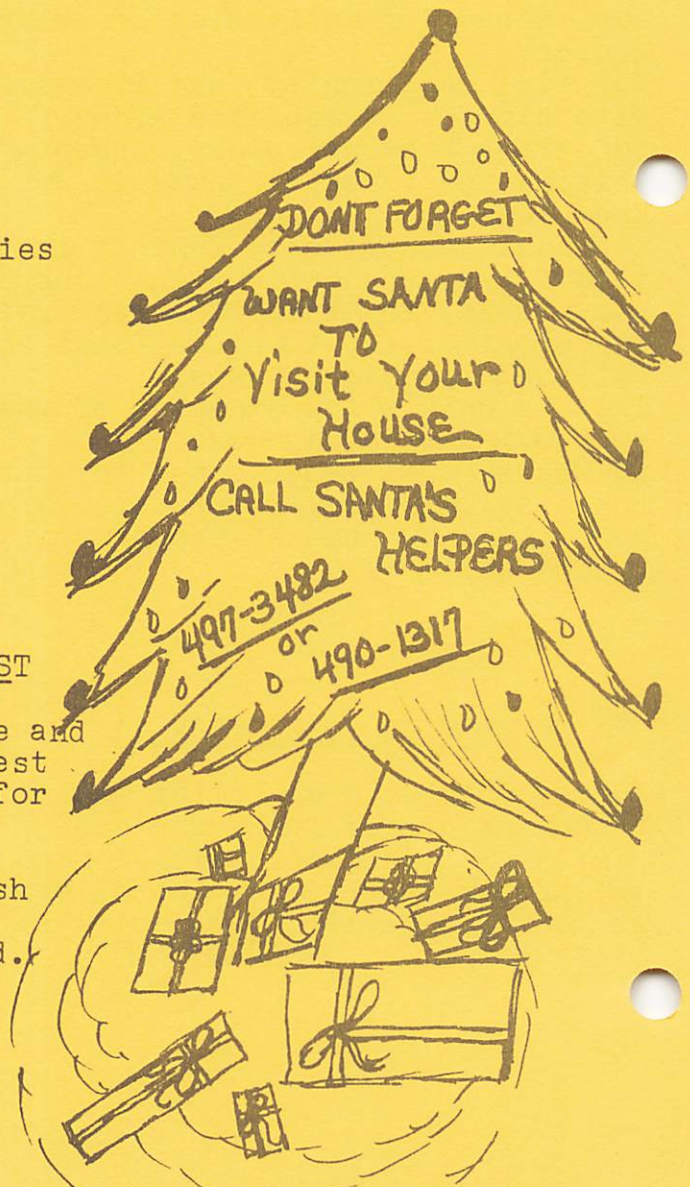 ies
ST
e and
est
for
sh
d.
DONT FORGET
WANT SANTA
TO
Visit Your
House
CALL SANTA'S
HELPERS
497-3482
or
490-1317